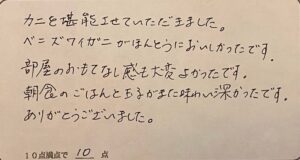 カニを堪能させていただきました。
ベニズワイガニがほんとうにおいしかったです。
部屋のおもてなし感も大変よかったです。
朝食のごはんとおかずがまた味わい深かったです。
ありがとうございました。
10点満点で 10 点